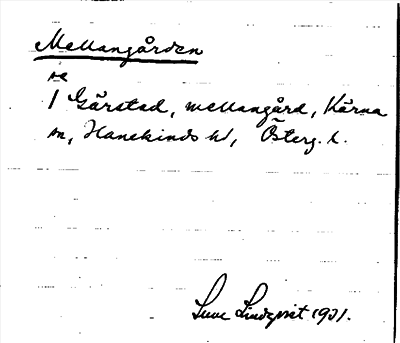 Mellangården
se
1 Gärstad, mellangård, Kärna
sn, Hanekinds hd, Österg. l.
Sune Lindqvist 1931.